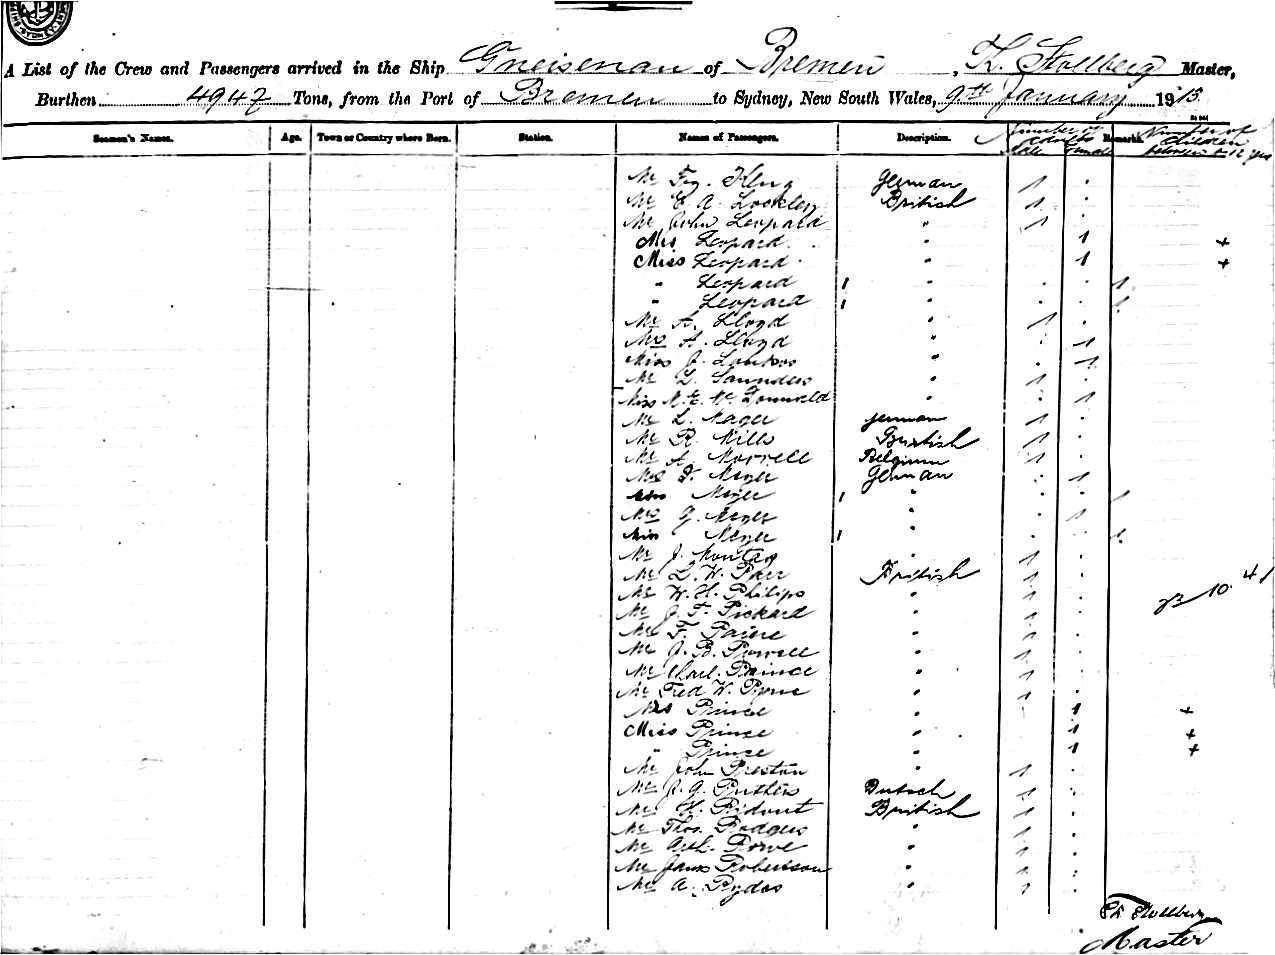 A List of the Crew and Passengers arrived in the Ship Gneisenau of Bremen, K. Stollberg Master,
Burthen 4947 Tons, from the Port of Bremen to Sydney, New South Wales, 9th January 1913
Seamen's Names. Age. Town or Country where Born. Station. Names of Passengers. Description. Number of adults Male Female Remarks. Number of children between 1-12 yrs
Mr German 1
Mr E. A. British 1
Mr John Leopard " 1
Mrs Leopard " 1 +
Miss Leopard " 1 +
" Leopard 1 " 1
" Leopard 1 " 1
Mr A. Lloyd " 1
Mrs A. Lloyd " 1
Miss J. " 1
Mr L. Saunders " 1
Miss M. E. " 1
Mr L. Mager German 1
Mr R. Mills British 1
Mr A. Morrell Belgium 1
Mrs F. Meyer German 1
Miss Meyer 1 " 1
Mrs G. Meyer " 1
Miss Meyer 1 " 1
Mr J. " 1
Mr L. W. Parr British 1
Mr W. H. Philips " 1
Mr J. F. Pickard " 1
Mr F. " 1
Mr J. B. Powell " 1
Mr Prince " 1
Mr Fred W. " 1
Mrs Prince " 1 +
Miss Prince " 1 +
" Prince " 1 +
Mr John Preston " 1
Mr J. G. Dutsch 1
Mr H. Ridout British 1
Mr Thos. Rodgers " 1
Mr Arth. Rowe " 1
Mr James Robertson " 1
Mr A. " 1
Stollberg
Master